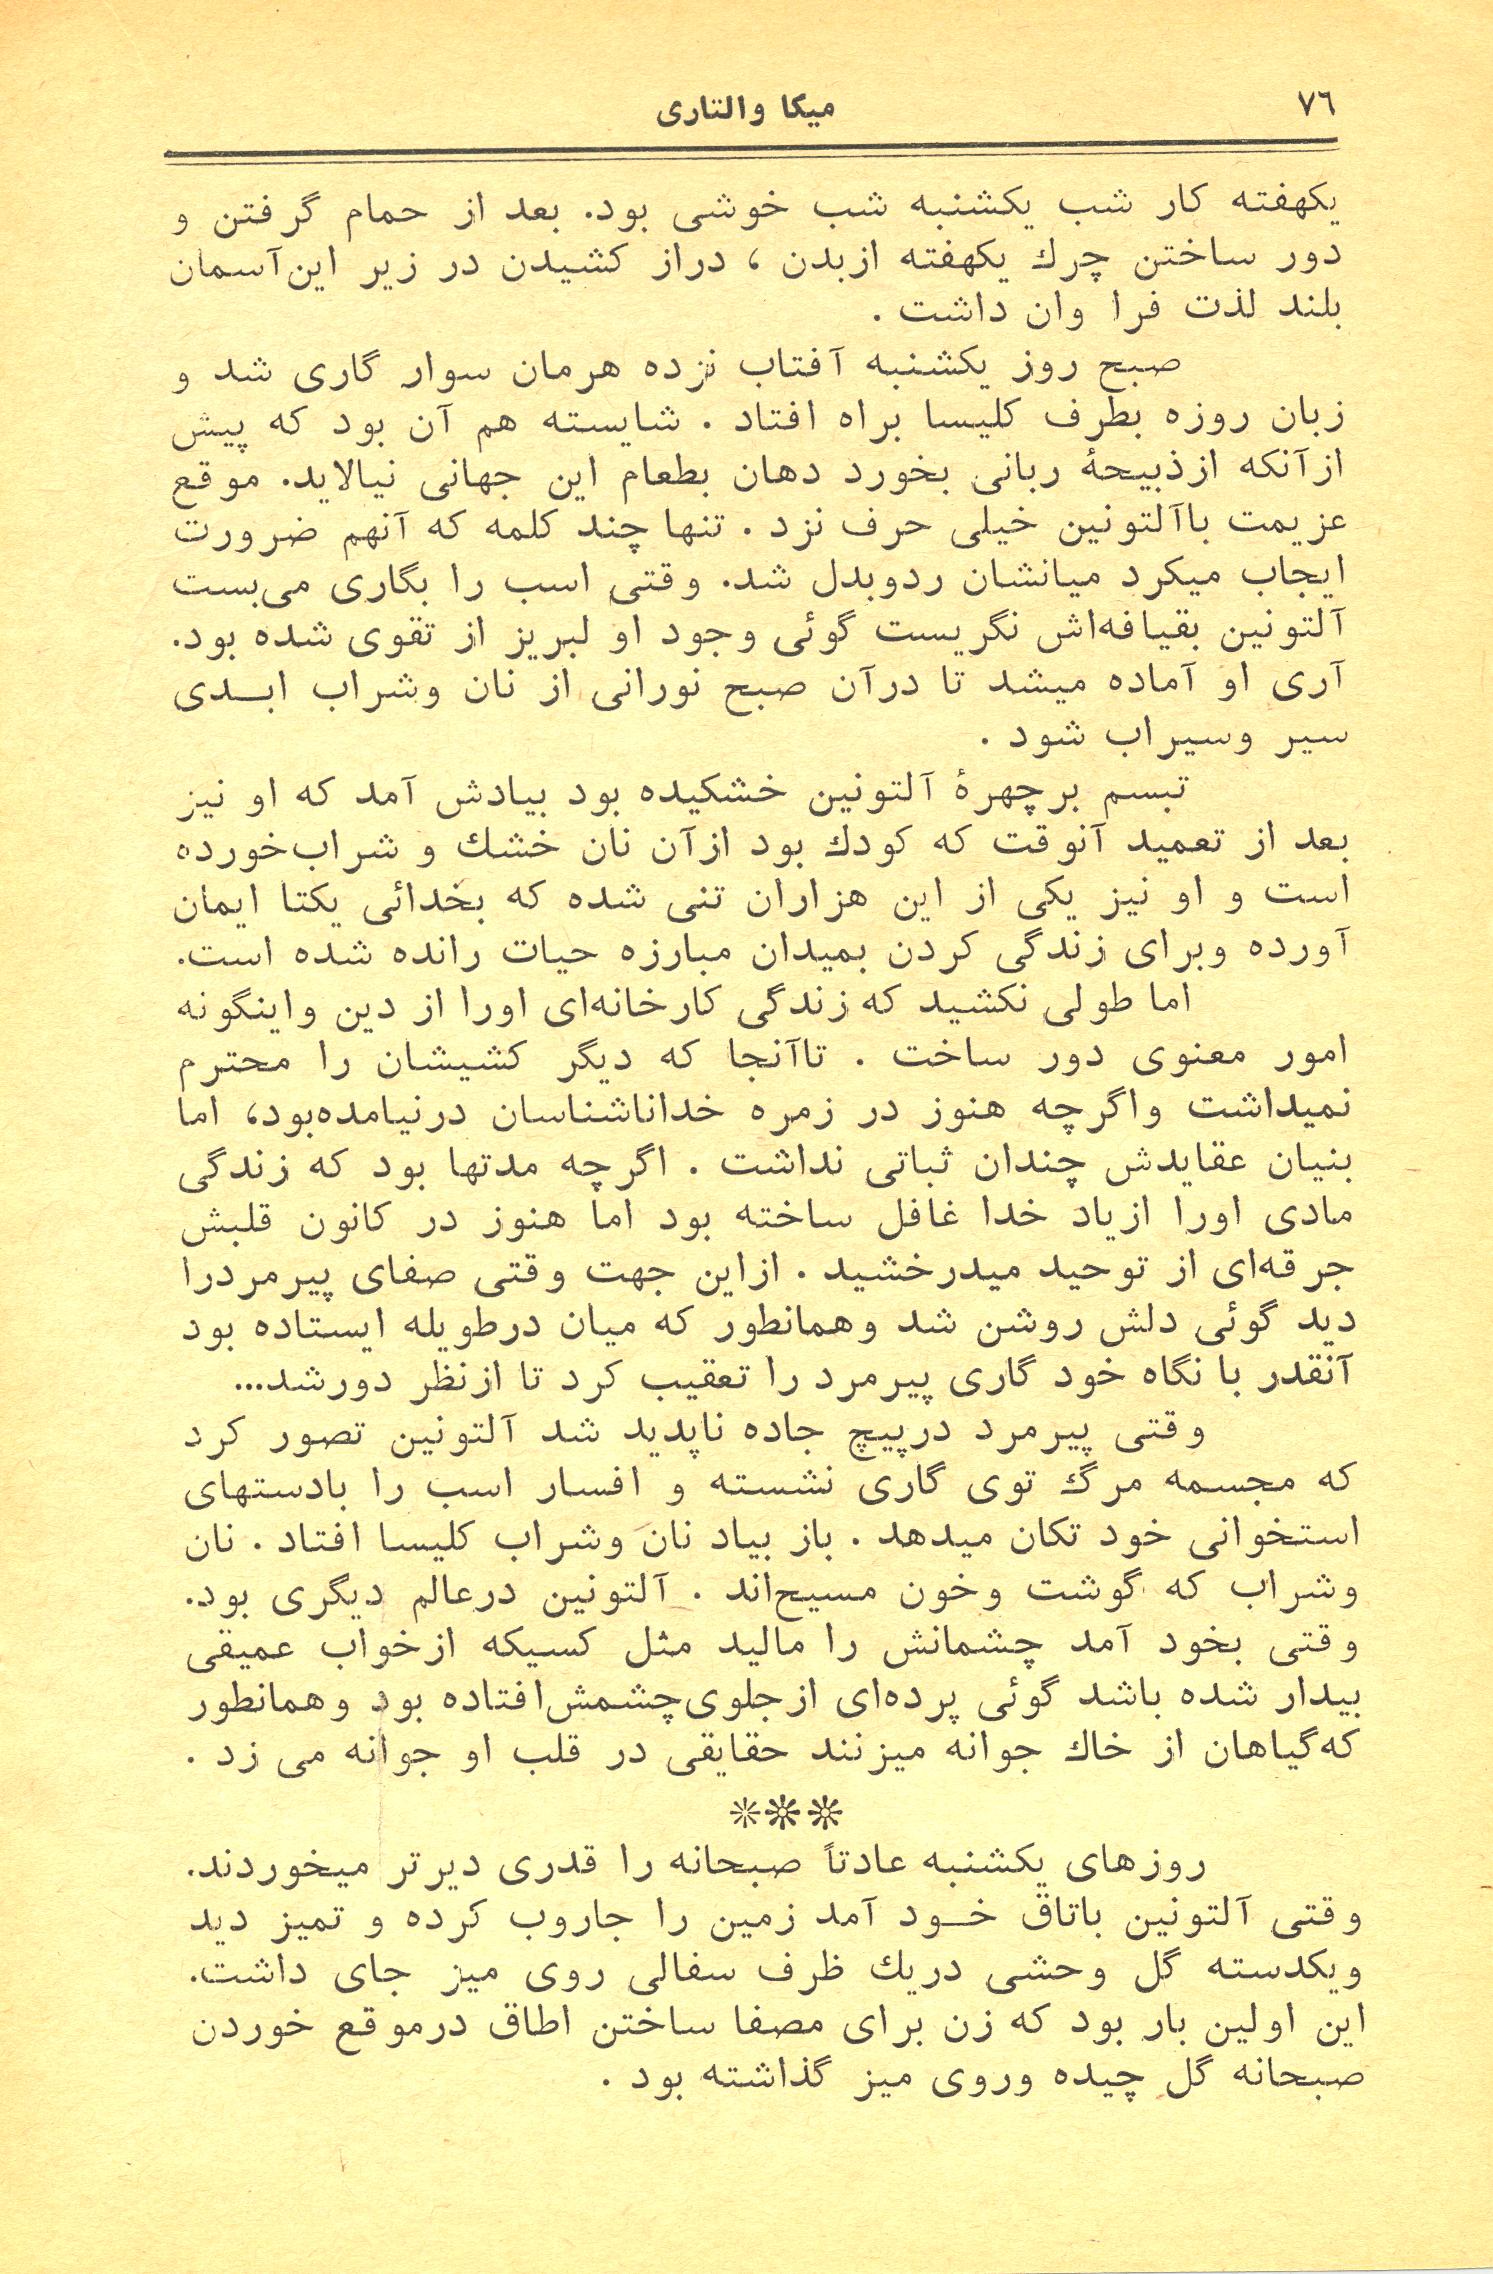 ۷٦
میکا والتاری
یکهفته کار شب یکشنبه شب خوشی بود. بعد از حمام گرفتن و
دور ساختن چرك یکهفته ازبدن ، دراز کشیدن در زیر این‌آسمان
بلند لذت فرا وان داشت .
صبح روز یکشنبه آفتاب نزده هرمان سوار گاری شد و
زبان روزه بطرف کلیسا براه افتاد . شایسته هم آن بود که پیش
ازآنکه ازذبیحهٔ ربانی بخورد دهان بطعام این جهانی نیالاید. موقع
عزیمت باآلتونین خیلی حرف نزد . تنها چند کلمه که آنهم ضرورت
ایجاب میکرد میانشان ردوبدل شد. وقتی اسب را بگاری می‌بست
آلتونین بقیافه‌اش نگریست گوئی وجود او لبریز از تقوی شده بود.
آری او آماده میشد تا درآن صبح نورانی از نان وشراب ابـدی
سیر وسیراب شود .
تبسم برچهرهٔ آلتونین خشکیده بود بیادش آمد که او نیز
بعد از تعمید آنوقت که کودك بود ازآن نان خشك و شراب‌خورده
است و او نیز یکی از این هزاران تنی شده که بخدائی یکتا ایمان
آورده وبرای زندگی کردن بمیدان مبارزه حیات رانده شده است.
اما طولی نکشید که زندگی کارخانه‌ای اورا از دین واینگونه
امور معنوی دور ساخت . تاآنجا که دیگر کشیشان را محترم
نمیداشت واگرچه هنوز در زمره خداناشناسان درنیامده‌بود، اما
بنیان عقایدش چندان ثباتی نداشت . اگرچه مدتها بود که زندگی
مادی اورا ازیاد خدا غافل ساخته بود اما هنوز در کانون قلبش
جرقه‌ای از توحید میدرخشید . ازاین جهت وقتی صفای پیرمردرا
دید گوئی دلش روشن شد وهمانطور که میان درطویله ایستاده بود
آنقدر با نگاه خود گاری پیرمرد را تعقیب کرد تا ازنظر دورشد...
وقتی پیرمرد درپیچ جاده ناپدید شد آلتونین تصور کرد
که مجسمه مرگ توی گاری نشسته و افسار اسب را بادستهای
استخوانی خود تکان میدهد . باز بیاد نان وشراب کلیسا افتاد . نان
وشراب که گوشت وخون مسیح‌اند . آلتونین درعالم دیگری بود.
وقتی بخود آمد چشمانش را مالید مثل کسیکه ازخواب عمیقی
بیدار شده باشد گوئی پرده‌ای ازجلوی‌چشمش‌افتاده بود وهمانطور
که‌گیاهان از خاك جوانه میزنند حقایقی در قلب او جوانه می زد .
❊❊❊
روزهای یکشنبه عادتاً صبحانه را قدری دیرتر میخوردند.
وقتی آلتونین باتاق خـود آمد زمین را جاروب کرده و تمیز دید
ویکدسته گل وحشی دریك ظرف سفالی روی میز جای داشت.
این اولین بار بود که زن برای مصفا ساختن اطاق درموقع خوردن
صبحانه گل چیده وروی میز گذاشته بود .